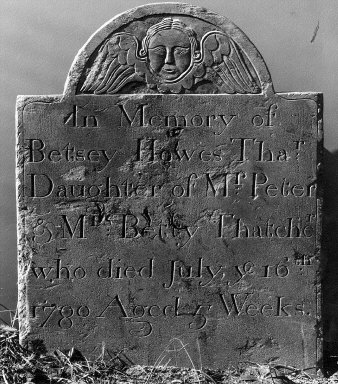 In Memory of
Betsey Howes Thaʳ
Daughter of Mʳ Peter
& Mʳˢ Betty Thatcheʳ
who died July yᵉ 16ᵗʰ
1790 Aged 5 Weeks.